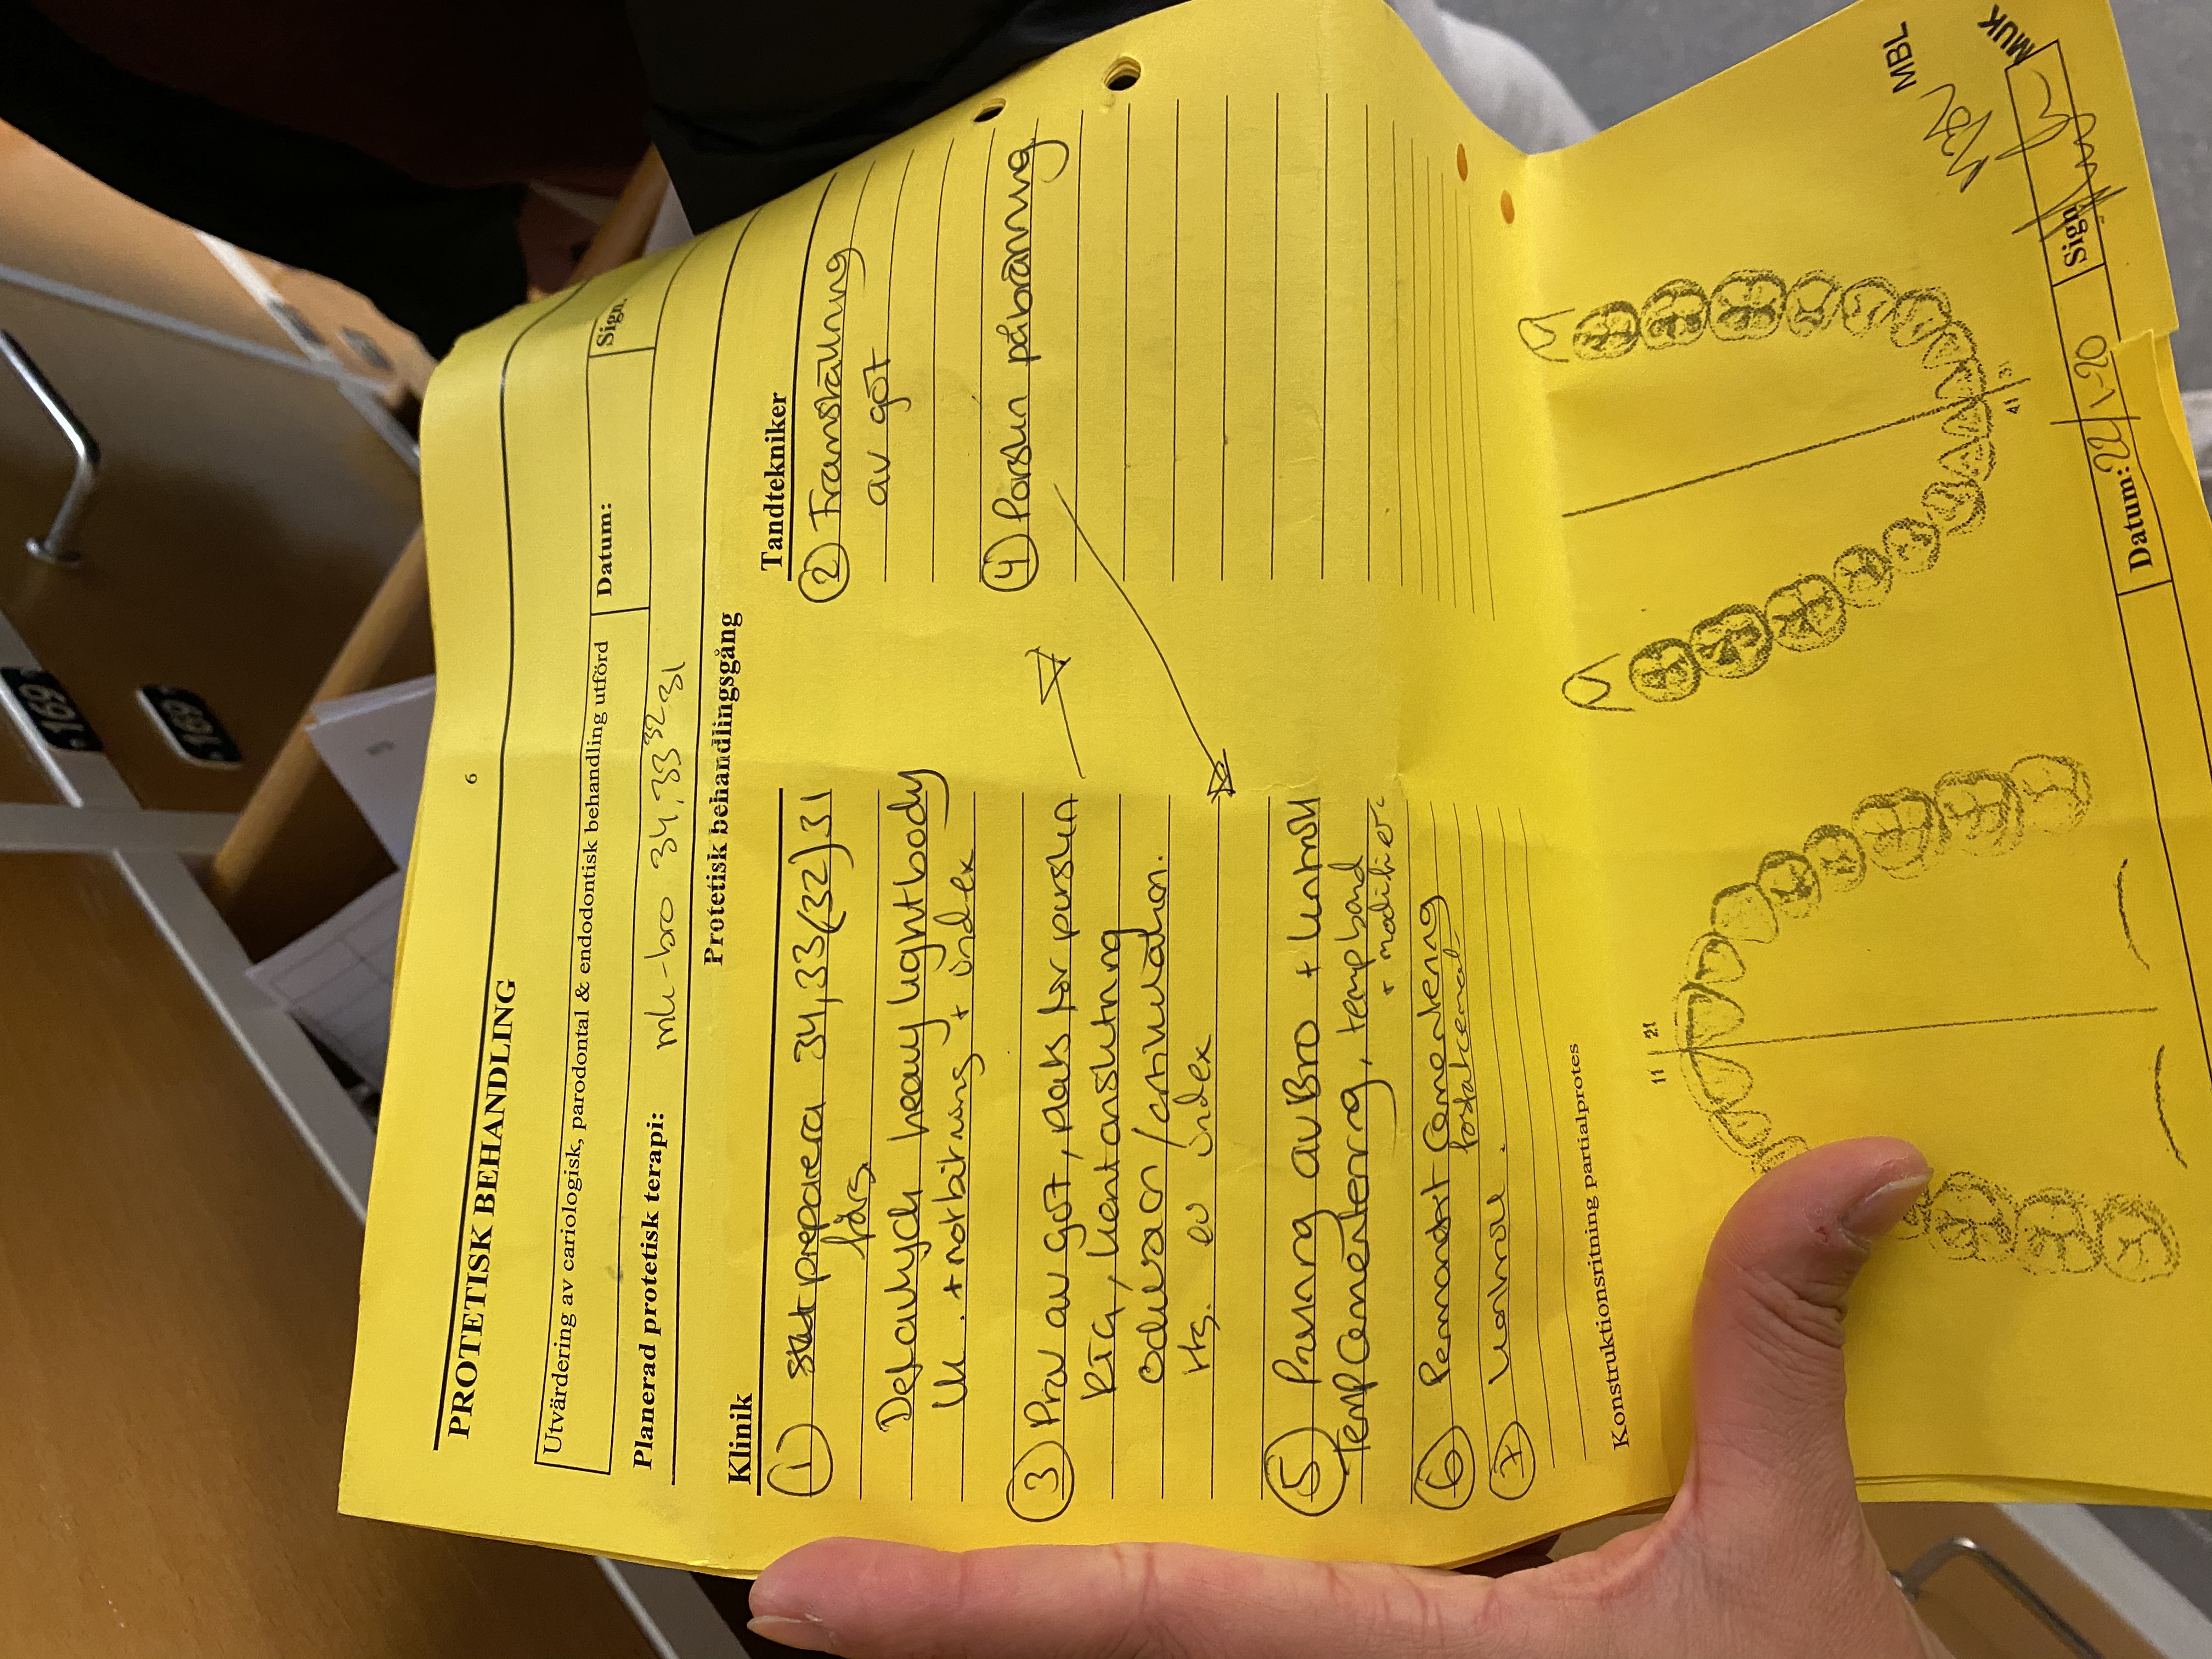 6
PROTETISK BEHANDLING
Utvärdering av cariologisk, parodontal & endodontisk behandling utförd
Datum:
Sign.
Planerad protetisk terapi: mk-bro 34,33 32 31
Protetisk behandlingsgång
Klinik
① preparera 34,33(32)31
färg.
heavy lightbody
Uk. + motbitning + index
③ Prov av göt, plats för porslin
RTG, kantanslutning
ocklusion/artikulation.
Ita. ev index
⑤ Provning av Bro + kontroll
Tempcementering, tempbond
+ modifier
⑥ Permanent Cementering
fosfatcement
⑦ kontroll.
Tandtekniker
② Framställning
av göt
④ Porslin påbränning
Konstruktionsritning partialprotes
11 21
41 31
MBL
MUK
Datum: 22/1-20
Sign
169
169